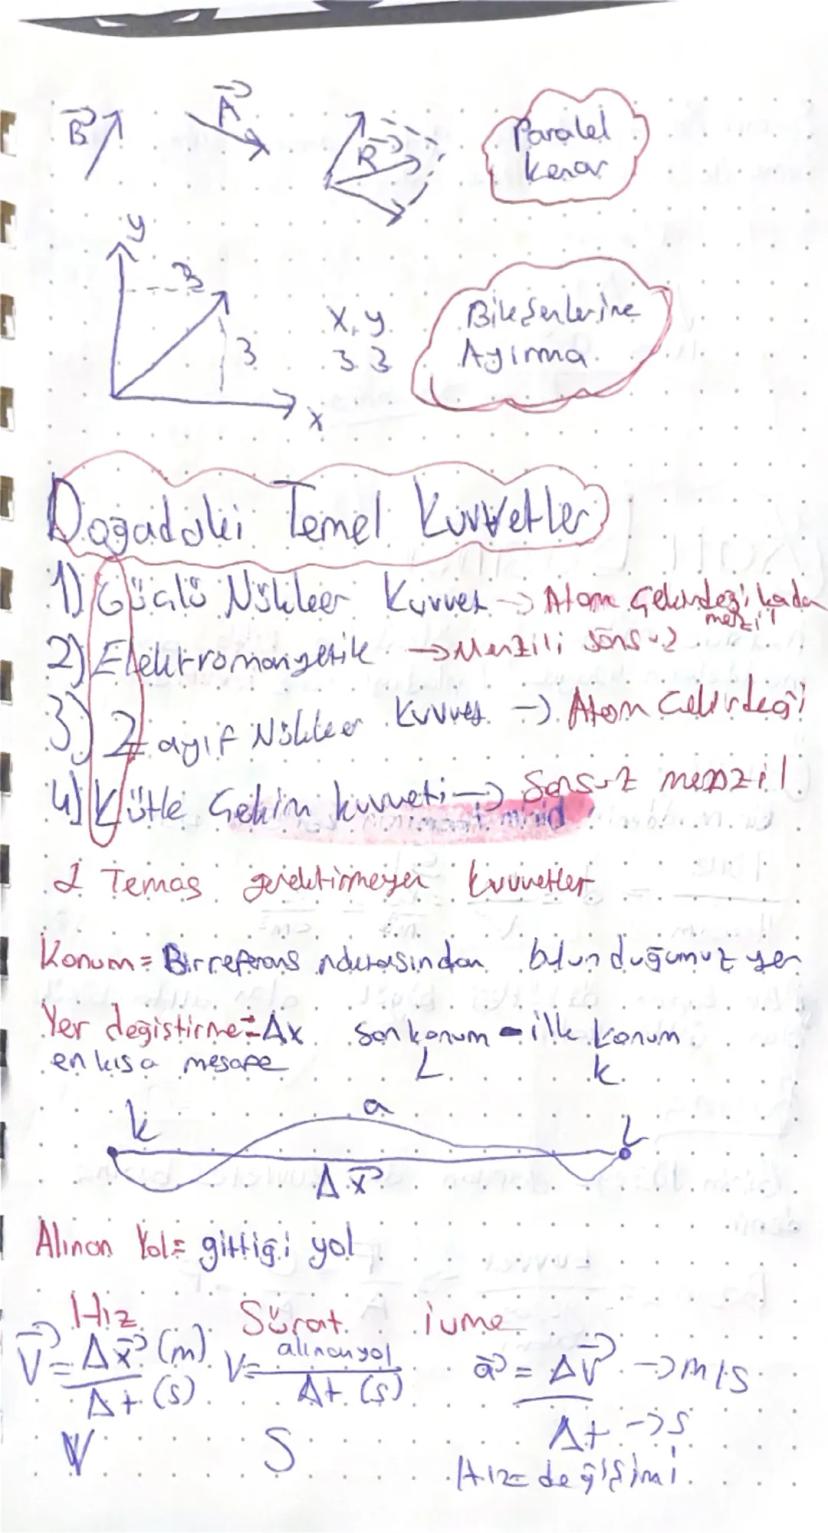 B A R Paralel
Kenar
y
3 X, y Bileşenlerine
3 3 3 Ayırma
x
Doğadaki Temel Kuvvetler
1) Güçlü Nükleer Kuvvet → Atom Çekirdeği kadar
menzil
2) Elektromanyetik → Menzili sonsuz
3) Zayıf Nükleer Kuvvet → Atom Çekirdeği
4) Kütle Çekim kuvveti → Sonsuz menzil
Temas gerektirmeyen kuvvetler
Konum = Bir referans noktasından bulunduğumuz yer
Yer değiştirme = Δx son konum - ilk konum
en kısa mesafe L k
k a L
Δx
Alınan Yol = gittiği yol
Hız Sürat ivme
V = Δx (m) / Δt (s) V = alınan yol / Δt (s) a = ΔV → m/s
Δt → s
V S
Hız = değişimi